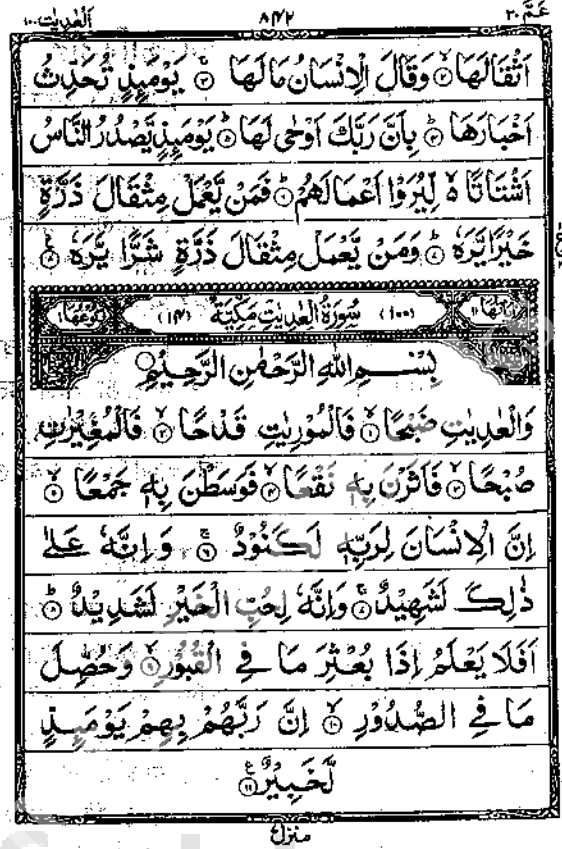 عَمَّ ٣٠ ٨٤٢ اَلْعٰدِيٰت ١٠٠
اَثْقَالَهَا ۙ﴿۲﴾ وَقَالَ الْاِنْسَانُ مَا لَهَا ۚ﴿۳﴾ يَوْمَىِٕذٍ تُحَدِّثُ
اَخْبَارَهَا ۙ﴿۴﴾ بِاَنَّ رَبَّكَ اَوْحٰى لَهَا ؕ﴿۵﴾ يَوْمَىِٕذٍ يَّصْدُرُ النَّاسُ
اَشْتَاتًا ۙ۬ لِّيُرَوْا اَعْمَالَهُمْ ؕ﴿۶﴾ فَمَنْ يَّعْمَلْ مِثْقَالَ ذَرَّةٍ
خَيْرًا يَّرَهٗ ؕ﴿۷﴾ وَمَنْ يَّعْمَلْ مِثْقَالَ ذَرَّةٍ شَرًّا يَّرَهٗ ﴿۸﴾
اٰيَاتُهَا ١١ (١٠٠) سُوْرَةُ الْعٰدِيٰتِ مَكِّيَّةٌ (١٤) رُكُوْعُهَا ١
بِسْمِ اللهِ الرَّحْمٰنِ الرَّحِيْمِ
وَالْعٰدِيٰتِ ضَبْحًا ۙ﴿۱﴾ فَالْمُوْرِيٰتِ قَدْحًا ۙ﴿۲﴾ فَالْمُغِيْرٰتِ
صُبْحًا ۙ﴿۳﴾ فَاَثَرْنَ بِهٖ نَقْعًا ۙ﴿۴﴾ فَوَسَطْنَ بِهٖ جَمْعًا ۙ﴿۵﴾
اِنَّ الْاِنْسَانَ لِرَبِّهٖ لَكَنُوْدٌ ۚ﴿۶﴾ وَاِنَّهٗ عَلٰى
ذٰلِكَ لَشَهِيْدٌ ۚ﴿۷﴾ وَاِنَّهٗ لِحُبِّ الْخَيْرِ لَشَدِيْدٌ ؕ﴿۸﴾
اَفَلَا يَعْلَمُ اِذَا بُعْثِرَ مَا فِي الْقُبُوْرِ ۙ﴿۹﴾ وَحُصِّلَ
مَا فِي الصُّدُوْرِ ۙ﴿۱۰﴾ اِنَّ رَبَّهُمْ بِهِمْ يَوْمَىِٕذٍ
لَّخَبِيْرٌ ﴿۱۱﴾
منزل